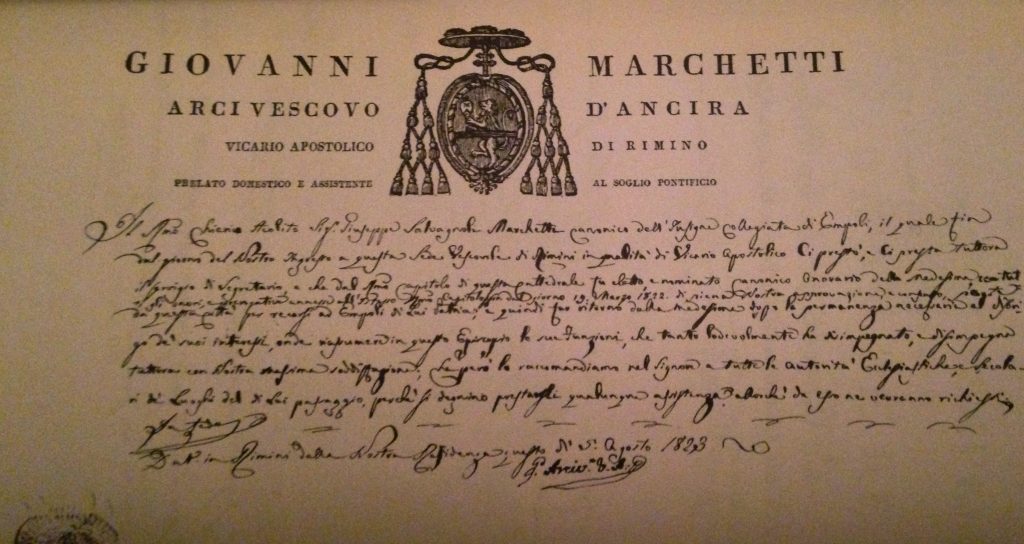 GIOVANNI MARCHETTI
ARCIVESCOVO D'ANCIRA
VICARIO APOSTOLICO DI RIMINO
PRELATO DOMESTICO E ASSISTENTE AL SOGLIO PONTIFICIO
Il Sigr. Giuseppe Salvagnoli Marchetti canonico dell' Insigne Collegiata di Empoli, il quale fin
dal giorno del Nostro Ingresso a questa Sede Vescovile di Rimini in qualità di Vicario Apostolico Ci prestò, e Ci presta tuttora
il servigio di Segretario, e che dal capitolo di questa cattedrale fu eletto, e nominato canonico Onorario della medesima,
19. Marzo 1822. di piena Nostra approvazione,
da questa città per recarsi ad Empoli di Lui Patria, e quindi far ritorno dalla medesima dopo la permanenza necessaria al disbri-
go de' suoi interessi, onde riassumere in questo Episcopio le sue funzioni, che tanto lodevolmente ha disimpegnato, e disimpegna
tuttora con Nostra massima soddisfazione; Se però lo raccomandiamo nel Signore a tutte le autorità Ecclesiastiche, e Secola-
ri de' Luoghi del di Lui passaggio, perchè si degnino prestargli qualunque assistenza, allorchè da esso ne verranno richiesti
In fede
Dat. in Rimini dalla Nostra Residenza questo dì 5. Agosto 1823
G. Arciv. V. A.